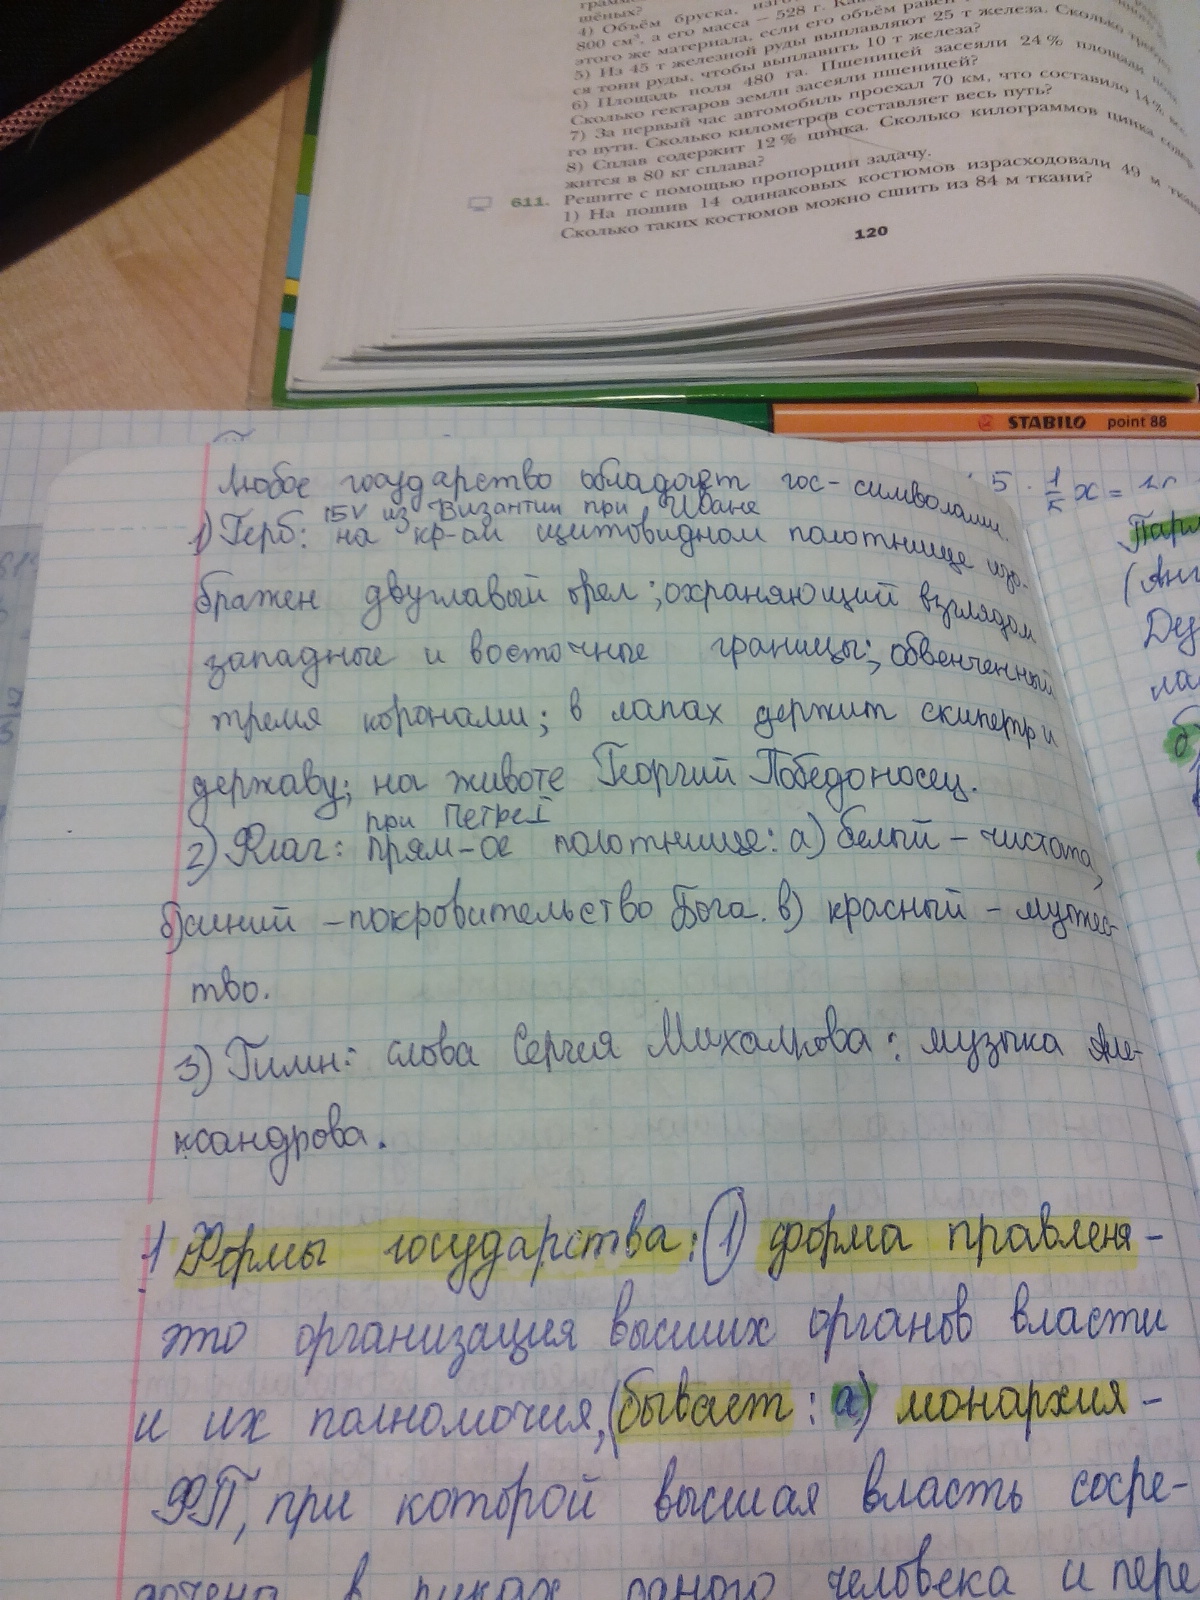 шёных?
4) Объём бруска,
800 см³, а его масса – 528 г.
этого же материала, если его объём равен
5) Из 45 т железной руды выплавляют 25 т железа. Сколько
ся тонн руды, чтобы выплавить 10 т железа?
6) Площадь поля 480 га. Пшеницей засеяли 24 % площади
Сколько гектаров земли засеяли пшеницей?
7) За первый час автомобиль проехал 70 км, что составило 14 %
го пути. Сколько километров составляет весь путь?
8) Сплав содержит 12 % цинка. Сколько килограммов цинка
жится в 80 кг сплава?
611. Решите с помощью пропорции задачу.
1) На пошив 14 одинаковых костюмов израсходовали 49 м
Сколько таких костюмов можно сшить из 84 м ткани?
120
STABILO point 88
Любое государство обладает гос-символами.
15V из Византии при Иване
1) Герб: на кр-ом щитовидном полотнище изо-
бражен двуглавый орел; охраняющий взглядом
западные и восточные границы; обвенченный
тремя коронами; в лапах держит скипетр и
державу; на животе Георгий Победоносец.
при Петре I
2) Флаг: прям-ое полотнище: а) белый – чистота,
б) синий – покровительство Бога. в) красный – мужес-
тво.
3) Гимн: слова Сергея Михалкова: музыка Але-
ксандрова.
1 Формы государства: 1) форма правленя –
это организация высших органов власти
и их полномочия, (бывает: а) монархия –
ФП, при которой высшая власть сосре-
дочена в руках одного человека и пере
5 · 1/5 x =
(Анг